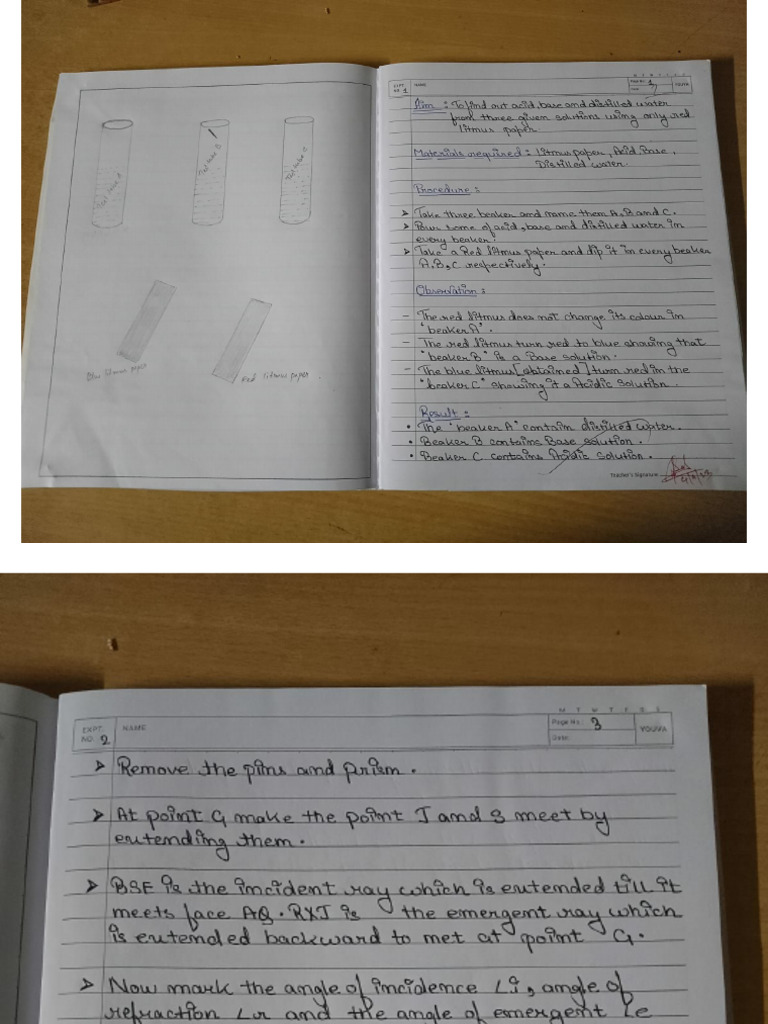 Test tube A
Test tube B
Test tube C
Blue litmus paper
Red litmus paper
M T W T F S S
EXPT. NO. 1
NAME
Page No.
Date:
YOUVA
Aim : To find out acid, base and distilled water
from three given solutions using only red
litmus paper.
Materials required : litmus paper, Acid, Base,
Distilled water.
Procedure :
➤ Take three beaker and name them A, B and C.
➤ Pour some of acid, base and distilled water in
every beaker.
➤ Take a Red litmus paper and dip it in every beaker
A, B, C respectively.
Observation :
- The red litmus does not change its colour in
'beaker A'.
- The red litmus turn red to blue showing that
"beaker B" is a Base solution.
- The blue litmus [obtained] turn red in the
"beaker C" showing it a Acidic Solution.
Result :
• The 'beaker A' contain distilled water.
• Beaker B contains Base solution.
• Beaker C contains Acidic Solution.
Teacher's Signature
M T W T F S S
EXPT. NO. 2
NAME
Page No. 3
Date:
YOUVA
➤ Remove the pins and prism.
➤ At point G make the point J and S meet by
extending them.
➤ BSF is the incident ray which is extended till it
meets face AQ. RXJ is the emergent ray which
is extended backward to met at point G.
➤ Now mark the angle of incidence ∠i, angle of
refraction ∠r and the angle of emergent ∠e